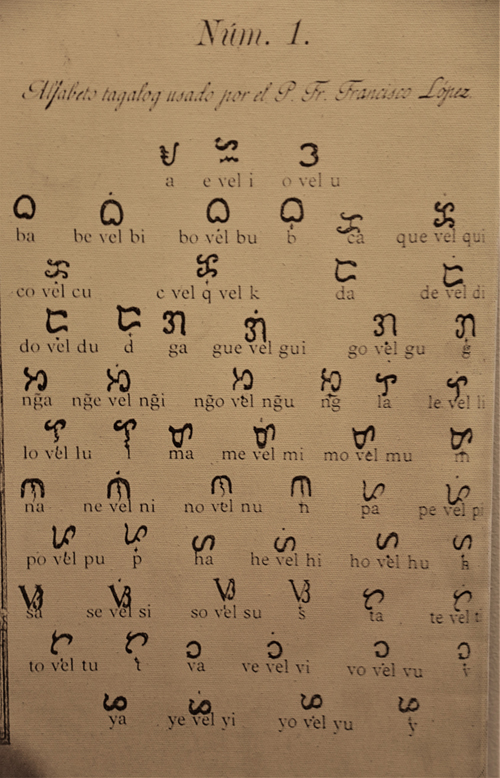 Núm. 1.
Alfabeto tagalog usado por el P. Fr. Francisco López.
ᜀ ᜁ ᜂ
a e vel i o vel u
ᜊ ᜊᜒ ᜊᜓ ᜊ᜔ ᜃ ᜃᜒ
ba be vel bi bo vel bu b ca que vel qui
ᜃᜓ ᜃ᜔ ᜇ ᜇᜒ
co vel cu c vel q vel k da de vel di
ᜇᜓ ᜇ᜔ ᜄ ᜄᜒ ᜄᜓ ᜄ᜔
do vel du d ga gue vel gui go vel gu g
ᜅ ᜅᜒ ᜅᜓ ᜅ᜔ ᜎ ᜎᜒ
ng̃a ng̃e vel ng̃i ng̃o vel ng̃u ng̃ la le vel li
ᜎᜓ ᜎ᜔ ᜋ ᜋᜒ ᜋᜓ ᜋ᜔
lo vel lu l ma me vel mi mo vel mu m
ᜈ ᜈᜒ ᜈᜓ ᜈ᜔ ᜉ ᜉᜒ
na ne vel ni no vel nu n pa pe vel pi
ᜉᜓ ᜉ᜔ ᜑ ᜑᜒ ᜑᜓ ᜑ᜔
po vel pu p ha he vel hi ho vel hu h
ᜐ ᜐᜒ ᜐᜓ ᜐ᜔ ᜆ ᜆᜒ
sa se vel si so vel su s ta te vel t
ᜆᜓ ᜆ᜔ ᜏ ᜏᜒ ᜏᜓ ᜏ᜔
to vel tu t va ve vel vi vo vel vu v
ᜌ ᜌᜒ ᜌᜓ ᜌ᜔
ya ye vel yi yo vel yu y